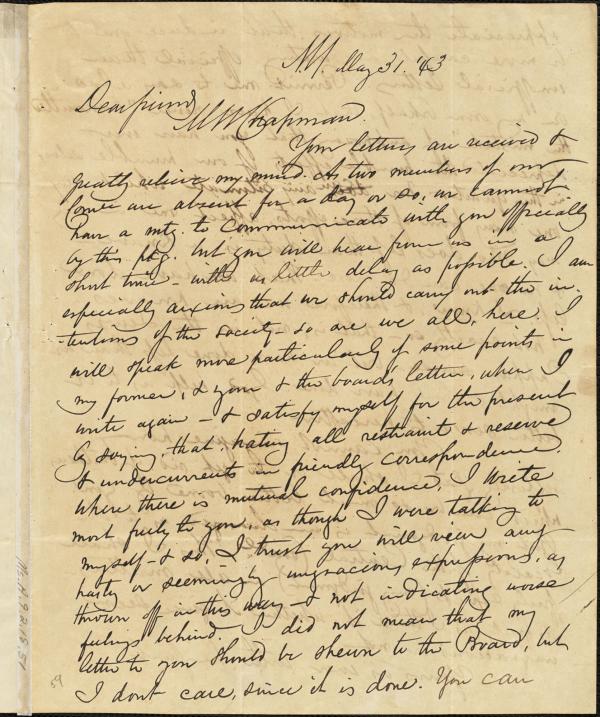 N.Y. May 31. '43
Dear friend
M W Chapman.
Your letters are received &
greatly relieve my mind. As two members of our
Comee are absent for a day or so, we cannot
have a mtg. to communicate with you officially
by this pkg. but you will hear from us in a
short time - with as little delay as possible. I am
especially anxious that we should carry out the in-
-tentions of the society - so are we all, here. I
will speak more particularly of some points in
my former, & your & the board's letter, when I
write again - & satisfy myself for the present
by saying, that, hating all restraint & reserve
& undercurrents in friendly correspondence,
where there is mutual confidence, I wrote
most freely to you, as though I were talking to
myself - & so, I trust you will view any
hasty or seemingly ungracious expressions, as
thrown off in this way - & not indicating worse
feelings behind. I did not mean that my
letter to you should be shewn to the Board, but
I dont care, since it is done. You can
59